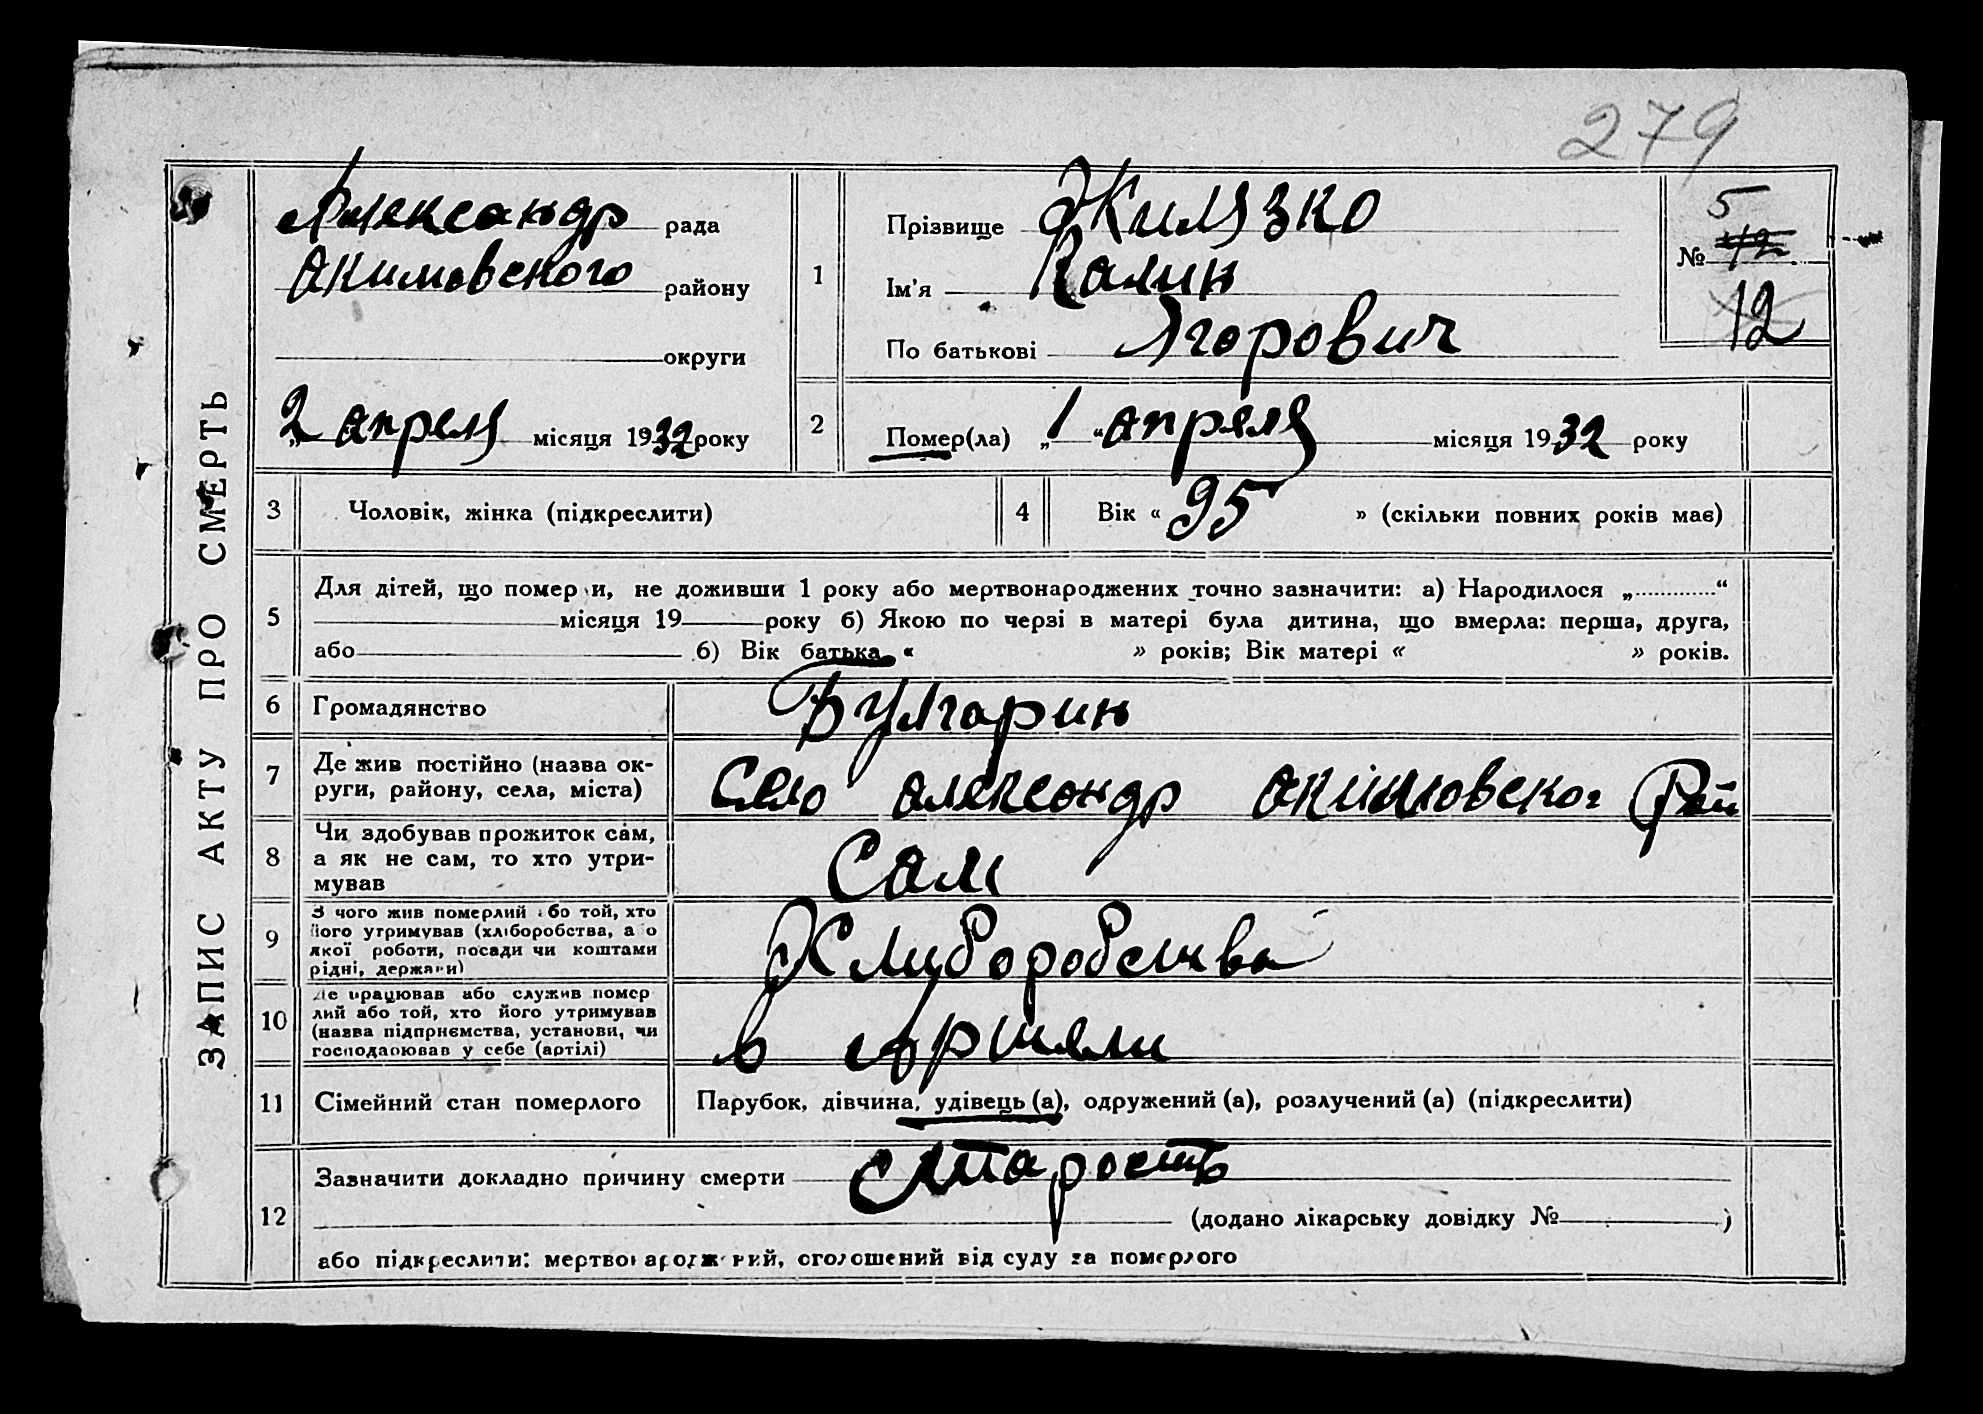 279
ЗАПИС АКТУ ПРО СМЕРТЬ
Александр рада
Акимовского району
округи
„2 апреля місяця 1932 року
1
Прізвище Жилязко
Ім'я Калин
По батькові Ягорович
5
№ 42
12
2
Помер(ла) „1“ апреля місяця 1932 року
3 Чоловік, жінка (підкреслити)
4 Вік « 95 » (скільки повних років має)
5
Для дітей, що померли, не доживши 1 року або мертвонароджених точно зазначити: а) Народилося „ “
місяця 19 року б) Якою по черзі в матері була дитина, що вмерла: перша, друга,
або б) Вік батька « » років; Вік матері « » років.
6 Громадянство Булгарин
7 Де жив постійно (назва ок-
руги, району, села, міста)
Село Александр Акімовског Рай
8 Чи здобував прожиток сам,
а як не сам, то хто утри-
мував
Сам
9 З чого жив померлий або той, хто
його утримував (хліборобства, або
якої роботи, посади чи коштами
рідні, держави)
Хлиборобства
10 Де працював або служив помер
лий або той, хто його утримував
(назва підприємства, установи, чи
господарював у себе (артілі)
в артели
11 Сімейний стан померлого Парубок, дівчина, удівець (а), одружений (а), розлучений (а) (підкреслити)
12
Зазначити докладно причину смерти старость
(додано лікарську довідку № )
або підкреслити: мертвонароджений, оголошений від суду за померлого